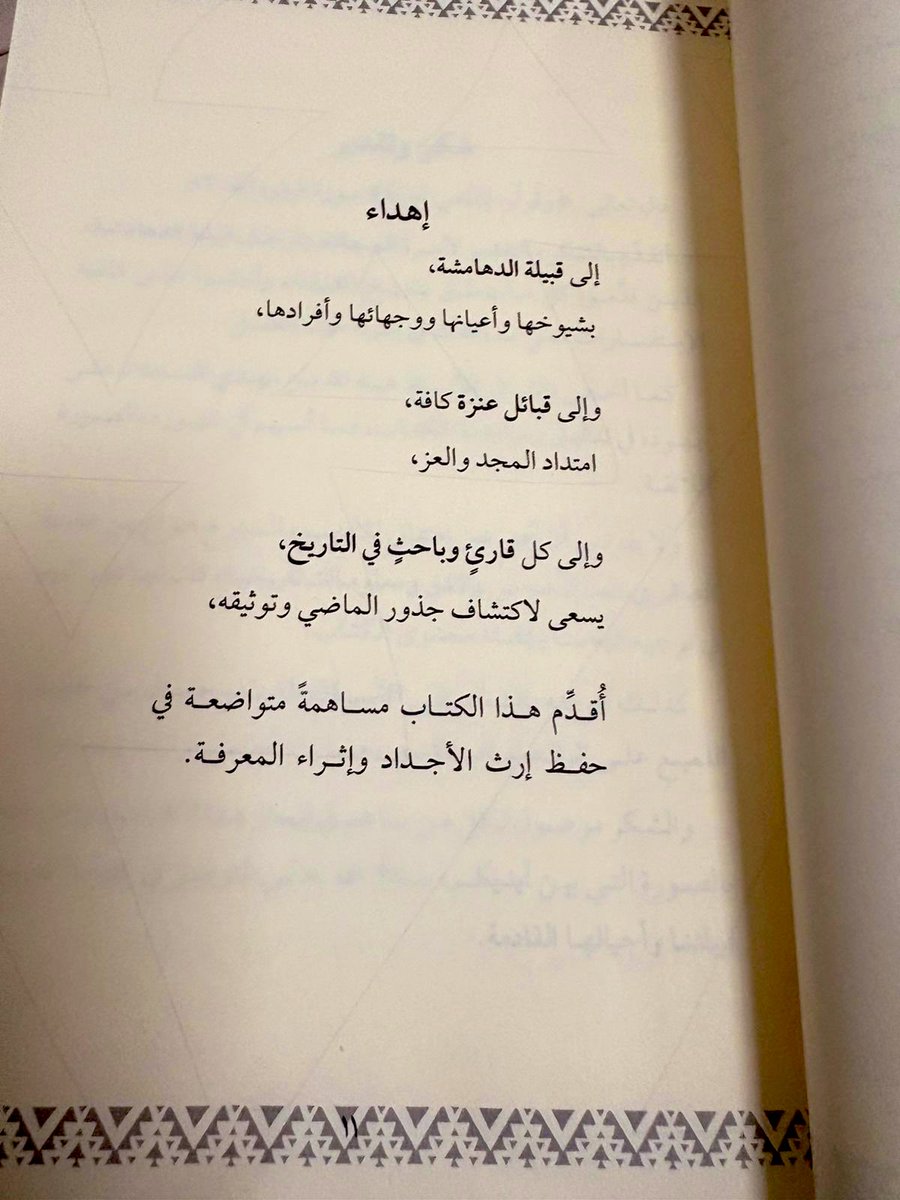 إهداء
إلى قبيلة الدهامشة،
بشيوخها وأعيانها ووجهائها وأفرادها،
وإلى قبائل عنزة كافة،
امتداد المجد والعز،
وإلى كل قارئٍ وباحثٍ في التاريخ،
يسعى لاكتشاف جذور الماضي وتوثيقه،
أُقدِّم هذا الكتاب مساهمةً متواضعة في
حفظ إرث الأجداد وإثراء المعرفة.
١١